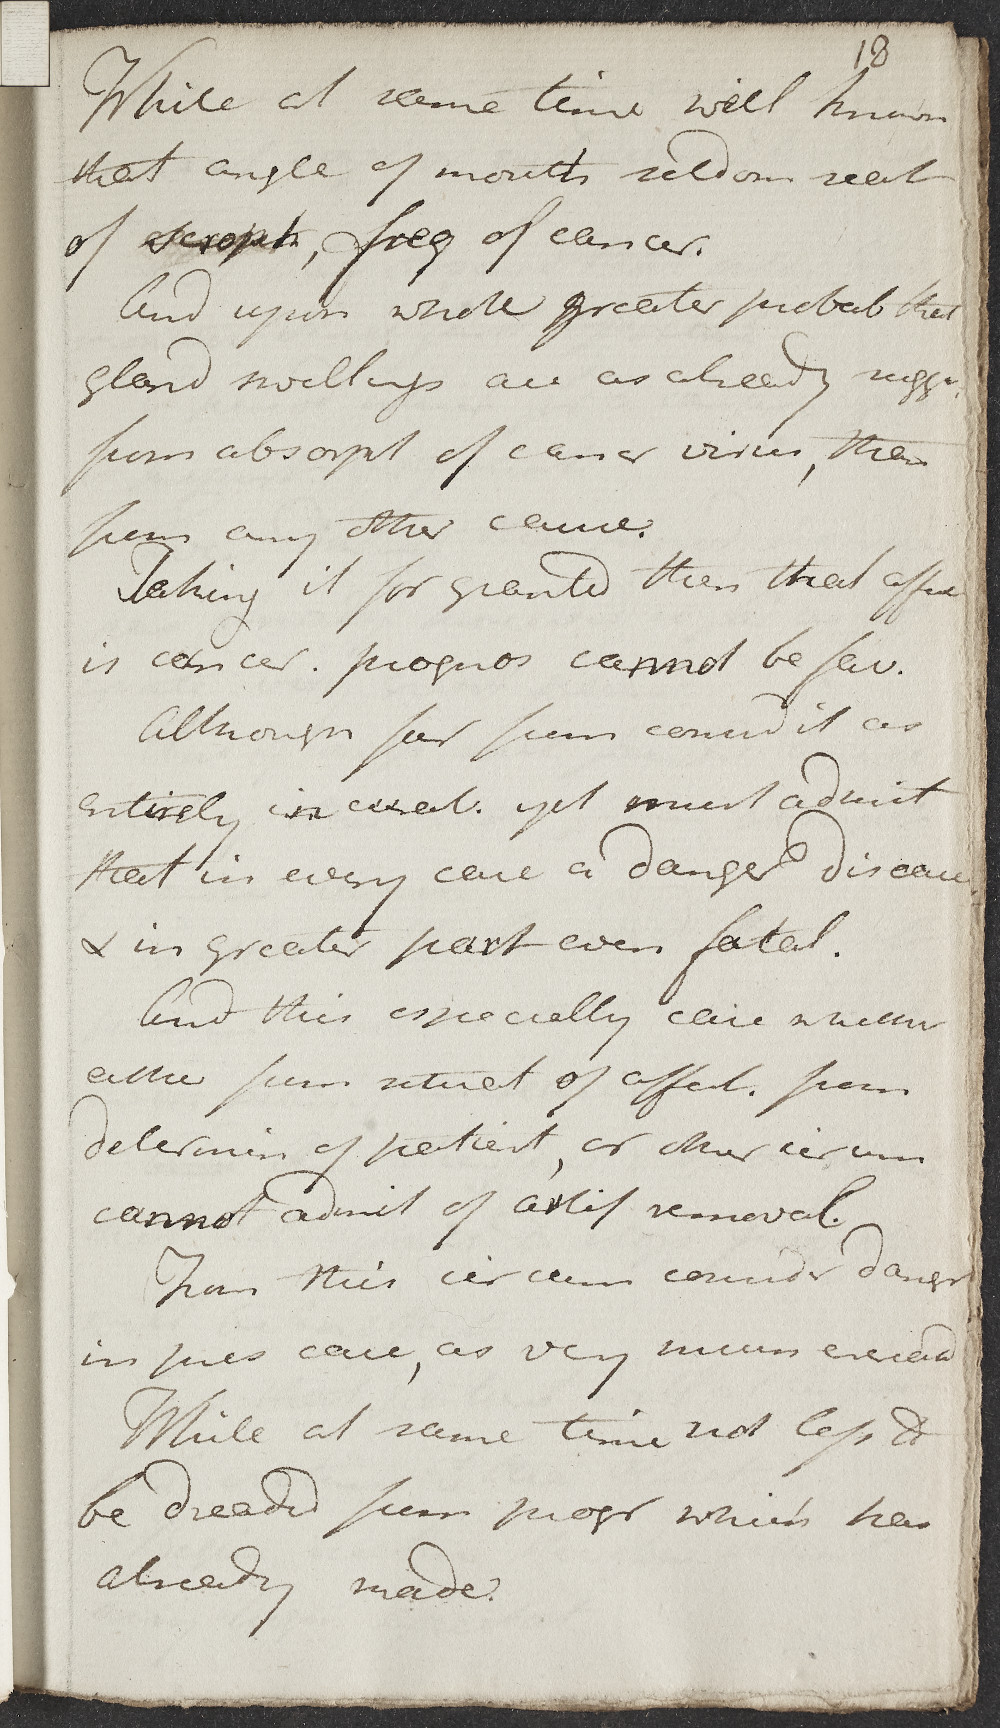 18
While at same time well known
that angle of mouth seldom seat
of scroph, freq of cancer.
And upon whole greater probab that
gland swellings are as already sugg.
from absorpt of cancr virus, than
from any other cause.
Taking it for granted then that affec
is cancer. prognos cannot be fav.
Although far from consid it as
entirely incurab. yet must admit
that in every case a danger disease,
& in greater part even fatal.
And this especially case when
either from situat of affect. from
determin of patient, or other circum
cannot admit of artif removal.
From this circum consider danger
in pres case, as very much
While at same time not less to
be dreaded from progr which has
already made.